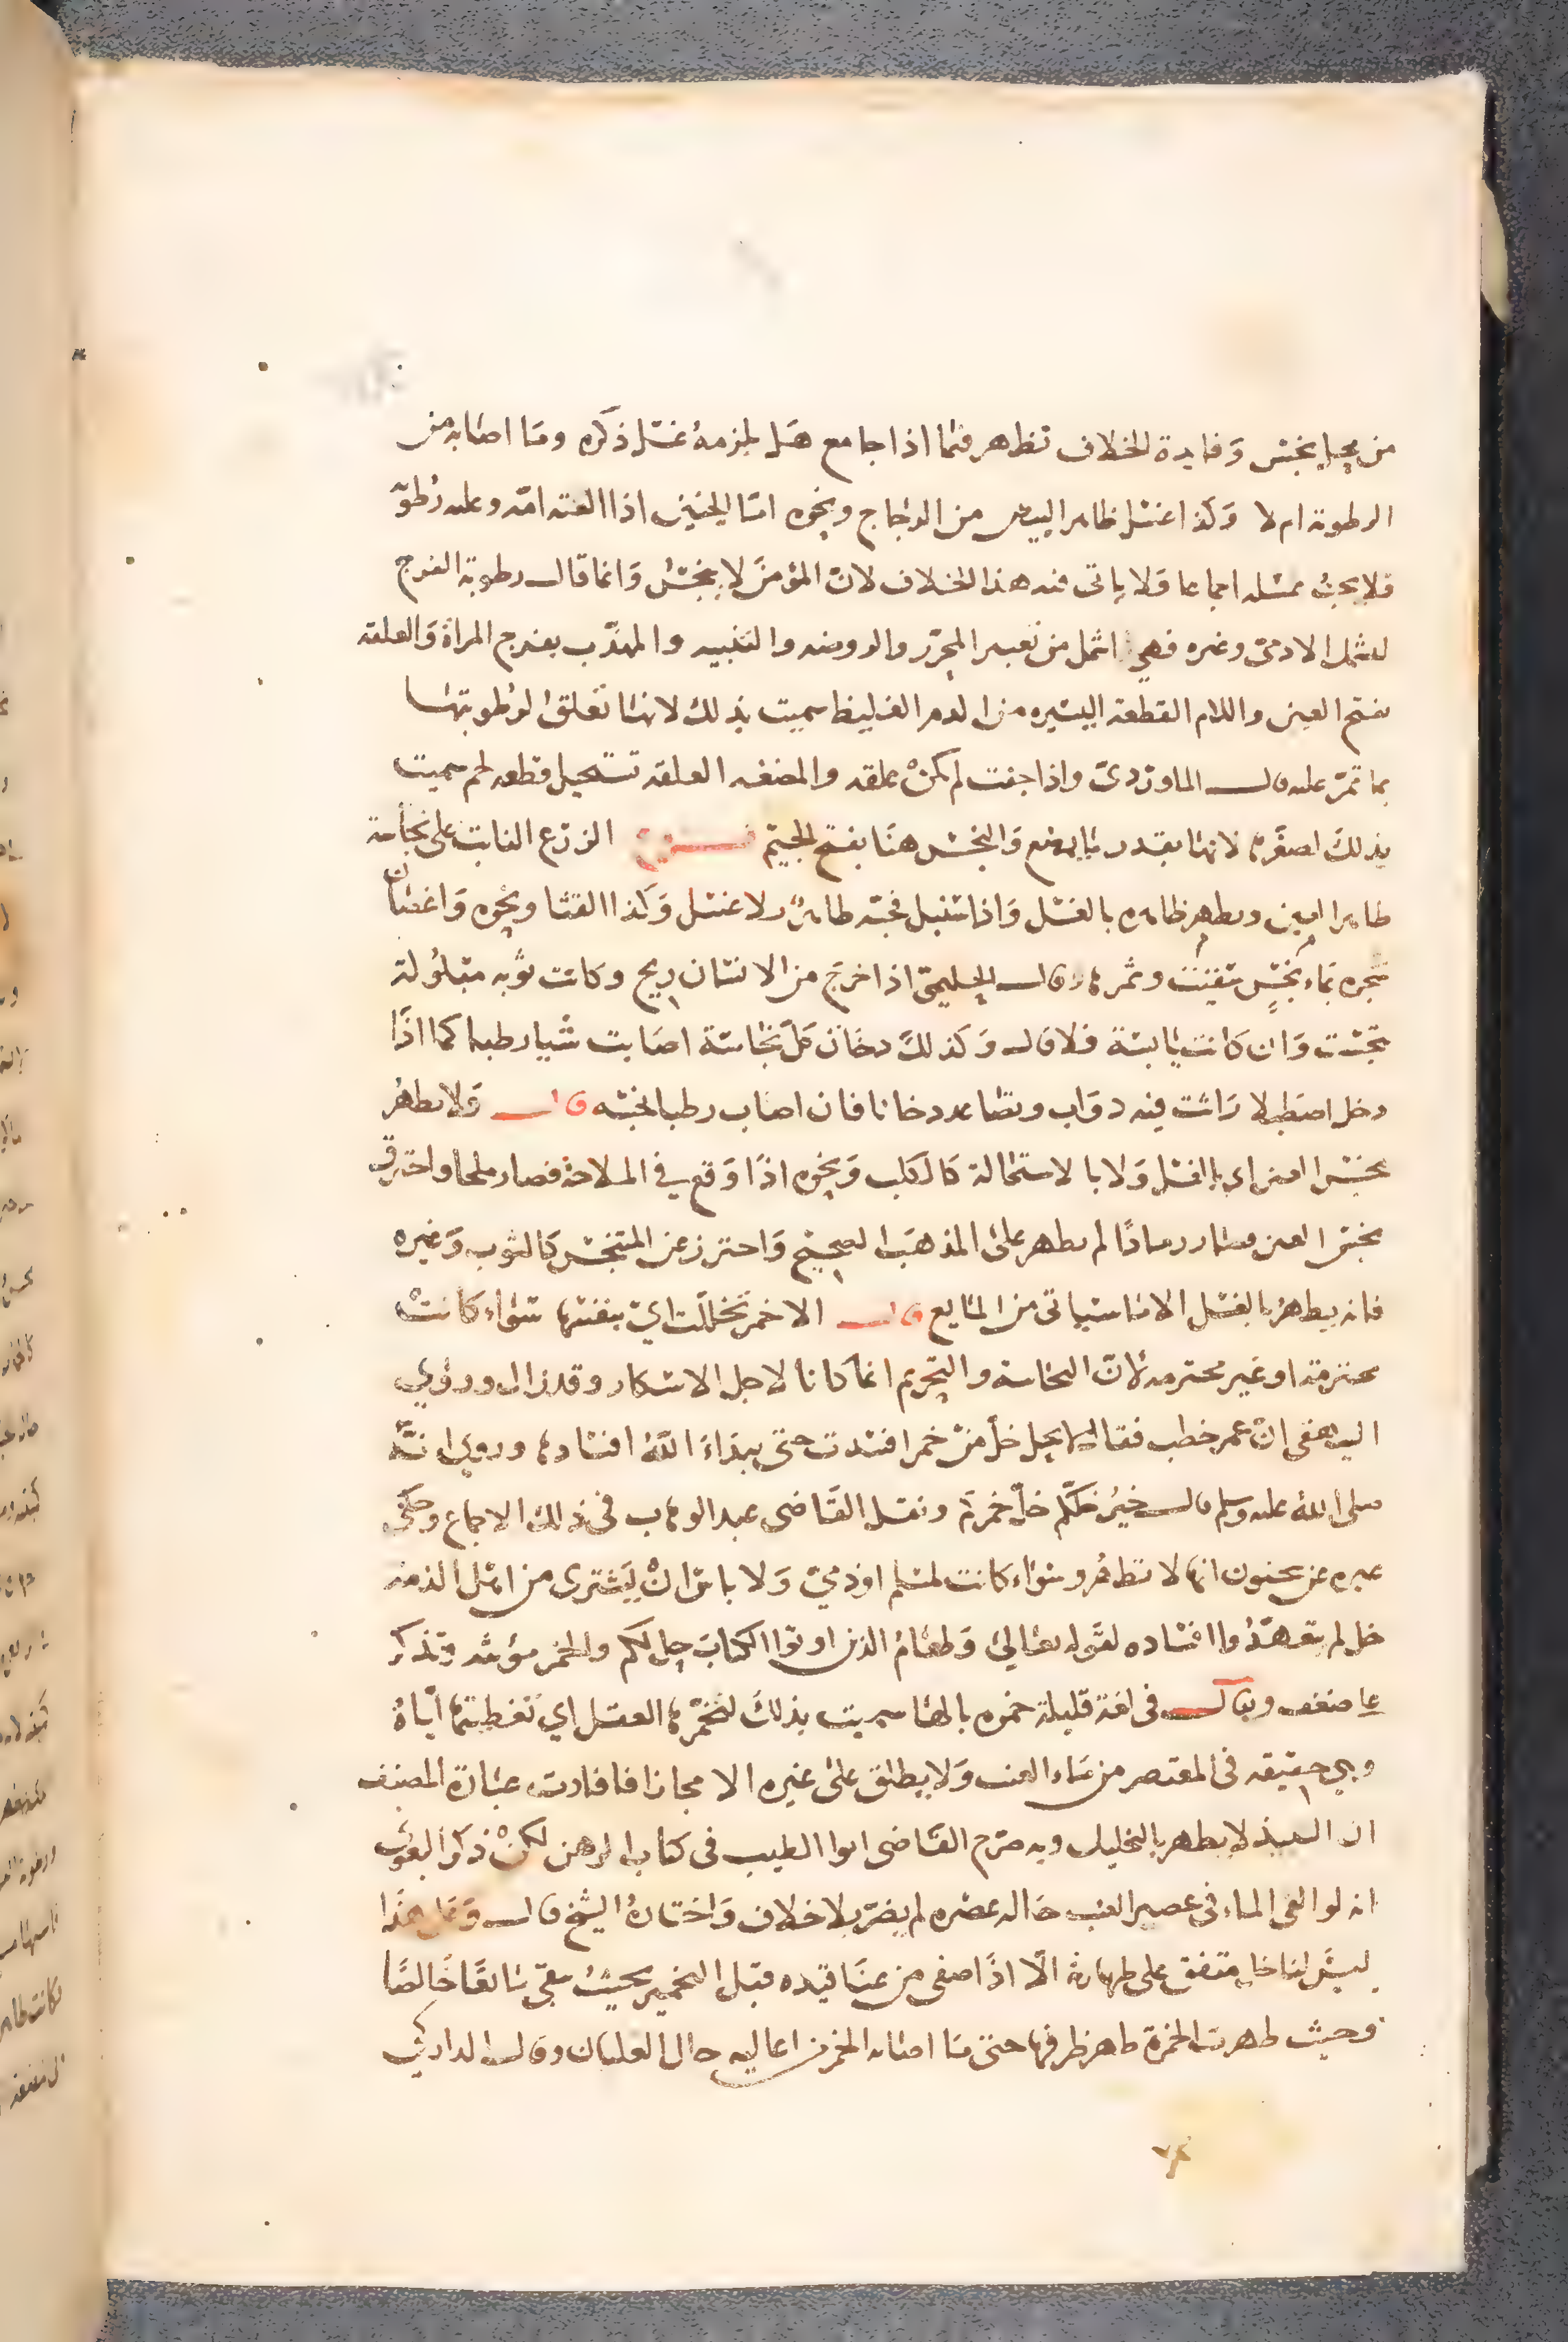 من محل نجس وفايدة الخلاف تظهر فيما اذا جامع هل يلزمه غسل ذكره وما اصابه من
الرطوبة ام لا وكذا غسل ظاهر البيض من الدجاج ونحوه امّا الجنين اذا القته امّه وعليه رطوبة
فلا يجب غسله اجماعا ولا ياتي فيه هذا الخلاف لانّ المؤمنَ لا ينجس وانما قال رطوبة الفرج
لتشمل الادمي وغيره فهي اشمل من تعبير المحرّر والروضه والتنبيه والمهذّب بفرج المراة والعلقه
بفتح العين واللام القطعة اليسيره من الدم الغليظ سميت بذلك لانها تعلق لرطوبتها
بما تمرّ عليه قال الماوردي واذا جفت لم تكنْ علقه والمضغه العلقه تستحيل قطعه لحم سميت
بذلك لصغرها لانها بقدر ما يمضغ والنجس هنا بفتح الجيم فروع الزرع النابت على نجاسة
طاهر العين ويطهر ظاهره بالغسل واذا سنبل فحبّه طاهرٌ بلا غسل وكذا القثا ونحوه واغصان
شجره بماء نجسٍ سقيت وثمرها قال الحليمي اذا خرج من الانسان ريح وكانت ثوبه مبلولة
نجّست وان كانت يابسة فلا قال وكذلك دخان كلّ نجاسة اصابت شيا رطبا كما اذا
دخل اصطبلا راثت فيه دوَاب وتصاعد دخانا فان اصاب رطبا نجسه قال ولا يطهُر
نجس العين اي بالغسل ولا بالاستحالة كالكلب ونحوه اذا وَقع في الملاحة فصار ملحا واحترق
نجس العين فصار رمادًا لم يطهر على المذهَب الصحيح واحترز عن المتنجّس كالثوب وَغيره
فانه يطهر بالغسل الا ما سياتي من المايع قال الا خمر تخللت اي بنفسها سواء كانتْ
محترمة او غير محترمه لانّ النجاسة والتحريم انما كانا لاجل الاسكار وقد زال وروي
البيهقي انّ عمر خطب فقال لا يحل خلّ منْ خمر افسدت حتى يبداءَ اللهُ افسادها وروي انّه
صلى الله عليه وسلم قال خيرُ خلّكم خلّ خمركم ونقل القاضي عبد الوهاب في ذلك الاجماع وحكى
غيره عن سحنون انها لا تطهُر وسواء كانت لمسلم اوذمي وَلا باس انْ يَشترى من اهل الذمه
خل لم يتعمّدُوا افساده لقوله تعالى وَطعَامُ الذين اوتوا الكتابَ حل لكم والخمر مؤنثه وتذكر
عا ضعف ويقال في لغة قليلة خمره بالهَا سميت بذلك لتخمّرها العقل اي تغطيتها ايّاهُ
وهي حقيقه في المعتصر من ماء العنب وَلا يطلق على غيره الا مجازا فافادت عبارة المصنف
ان النبيذ لا يطهر بالتخليل وبه صرّح القاضي ابوا الطيب في كتاب الرهن لكنْ ذكر البغوي
انه لو القي الماء في عصير العنب حاله عصره لم يضرّ بلا خلاف وَاختارهُ الشيخ قال وَعَلى هذا
ليسَ لنا خل متفق على طهارته الّا اذا صفي من عناقيده قبل التخمير بحيث بقي مَائعًا خَالصًا
وحيث طهرت الخمرة طهر ظرفها حتى مَا اصابه الخمر من اعاليه حال الغليان وقال الداركي